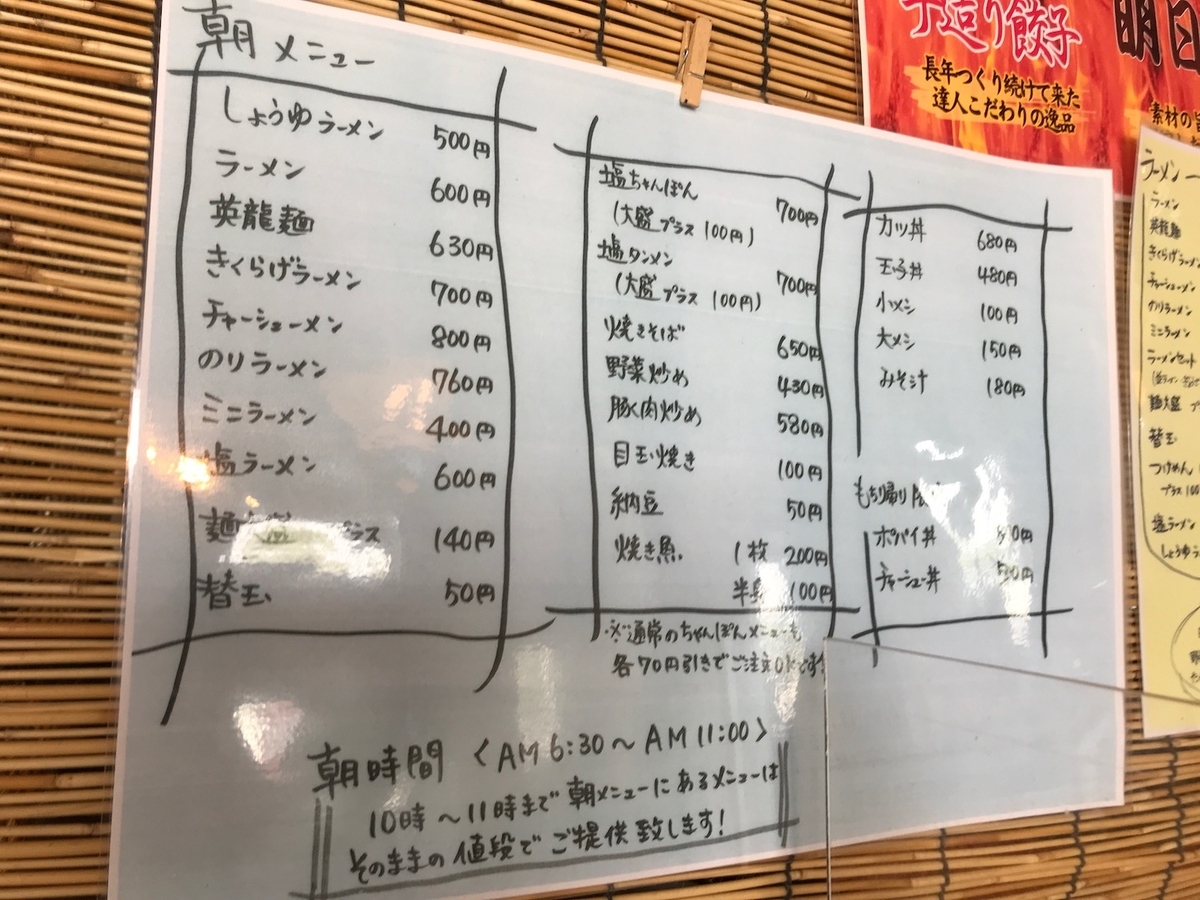 朝メニュー
しょうゆラーメン 500円
ラーメン 600円
英龍麺 630円
きくらげラーメン 700円
チャーシューメン 800円
のりラーメン 760円
ミニラーメン 400円
塩ラーメン 600円
麺 プラス 140円
替玉 50円
塩ちゃんぽん 700円
(大盛プラス100円)
塩タンメン 700円
(大盛プラス 100円)
焼きそば 650円
野菜炒め 430円
豚肉炒め 580円
目玉焼き 100円
納豆 50円
焼き魚 1枚 200円
半身 100円
※通常のちゃんぽんメニューも
各70円引きでご注文OKです
カツ丼 680円
玉子丼 480円
小メシ 100円
大メシ 150円
みそ汁 180円
もち帰り
ポパイ丼
チャーシュー丼
朝時間 〈AM 6:30〜AM 11:00〉
10時〜11時まで朝メニューにあるメニューは
そのままの値段でご提供致します!
手造り餃子
長年つくり続けて来た
達人こだわりの逸品
明日
素材の
ラーメン
ラーメン
英龍麺
きくらげラーメン
チャーシューメン
のりラーメン
ミニラーメン
ラーメンセット
麺大盛
替玉
つけめん
プラス100
塩ラーメン
しょうゆラ